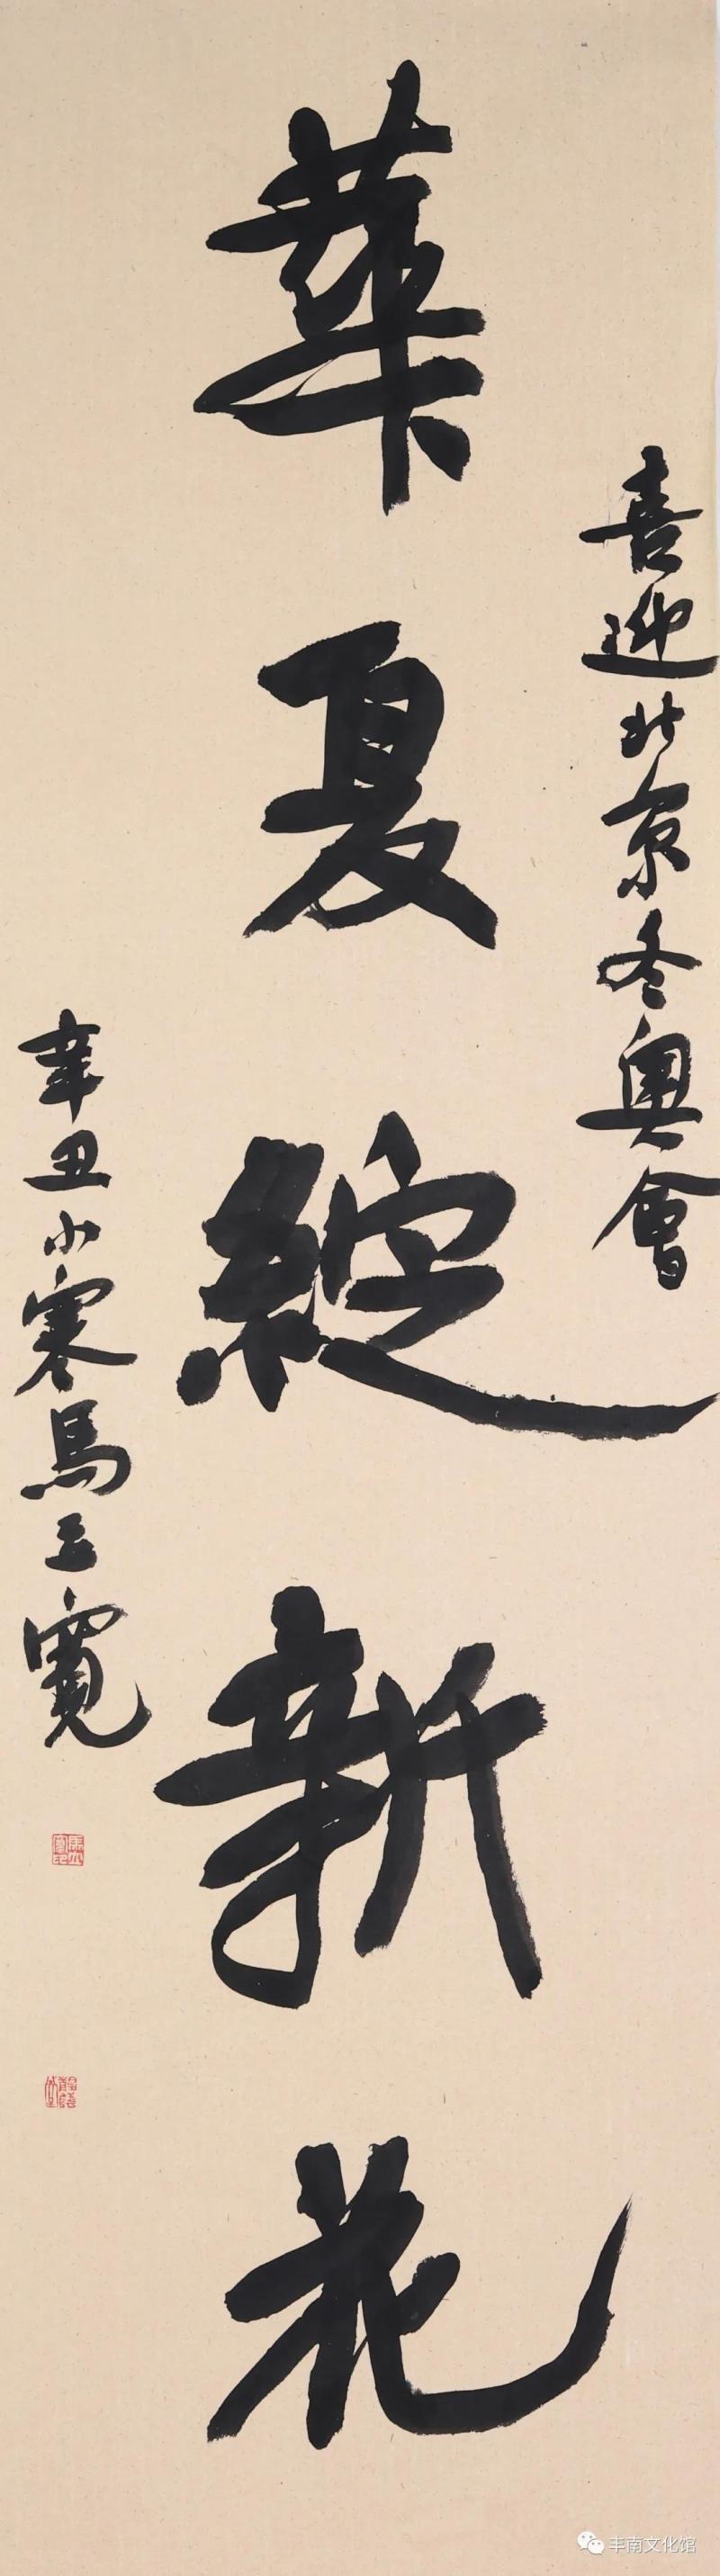 喜迎北京冬奧會
華夏綻新花
辛丑小寒馬立寬
丰南文化馆